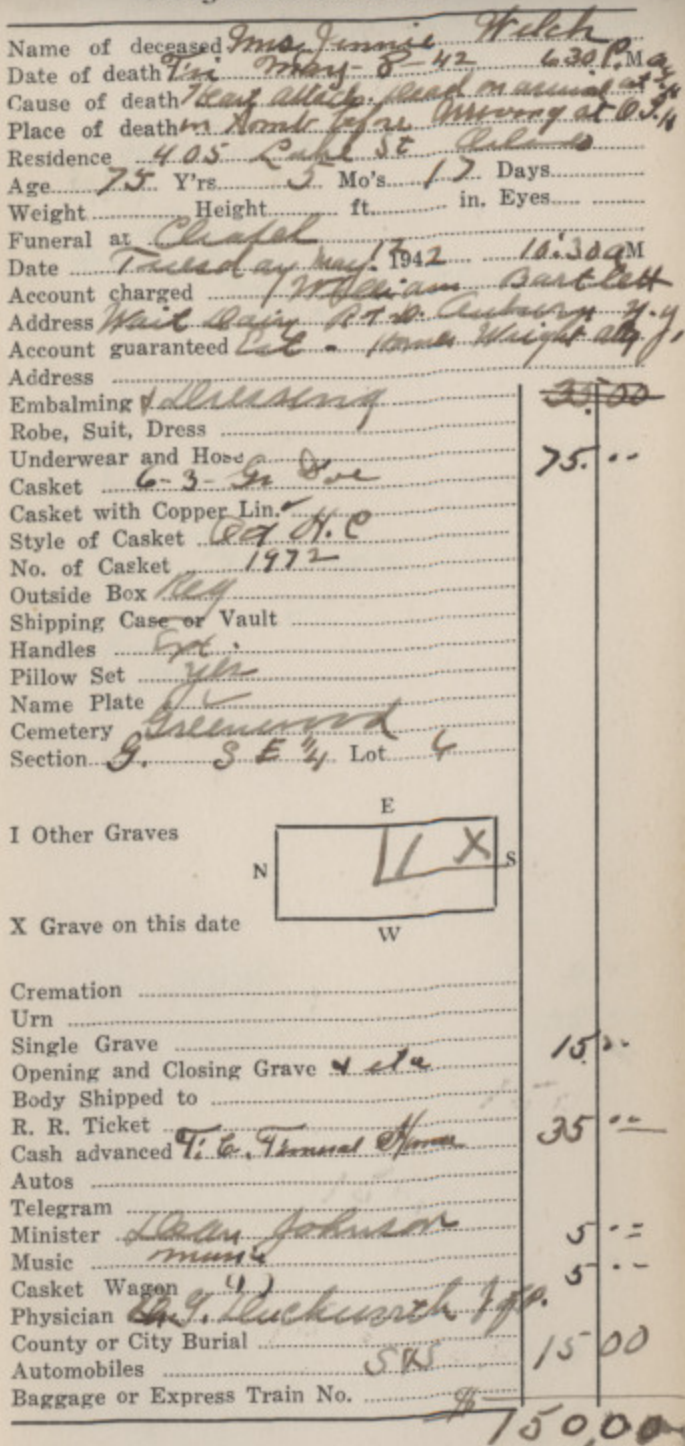 Name of deceased Mrs. Jennie Welch
Date of death Fri May-8-42 6:30 P.M
Cause of death Heart attack. Dead on arrival at
Place of death in Amb before arriving at
Residence 405 Lake St Orlando
Age 75 Y'rs 5 Mo's 17 Days
Weight Height ft. in. Eyes
Funeral at Chapel
Date Tuesday May. 12 1942 10:30 a M
Account charged William Bartlett
Address Wait Dairy R.F.D. Auburn N.Y
Account guaranteed Est - Wright
Address
Embalming & Dressing 35.00
Robe, Suit, Dress
Underwear and Hose 75. --
Casket 6-3- Gr Doe
Casket with Copper Lin.
Style of Casket Oct H.C
No. of Casket 1972
Outside Box Reg
Shipping Case or Vault
Handles Ext.
Pillow Set yes
Name Plate ✓
Cemetery Greenwood
Section G. S E 1/4 Lot 6
E
I Other Graves
I X
N S
X Grave on this date
W
Cremation
Urn
Single Grave 15 --
Opening and Closing Grave & etc
Body Shipped to
R. R. Ticket 35 --
Cash advanced T. C. Funeral Home
Autos
Telegram
Minister Dean Johnson 5 --
Music music 5 --
Casket Wagon
Physician Duckworth J.P.
County or City Burial 15 00
Automobiles
Baggage or Express Train No.
$150.00